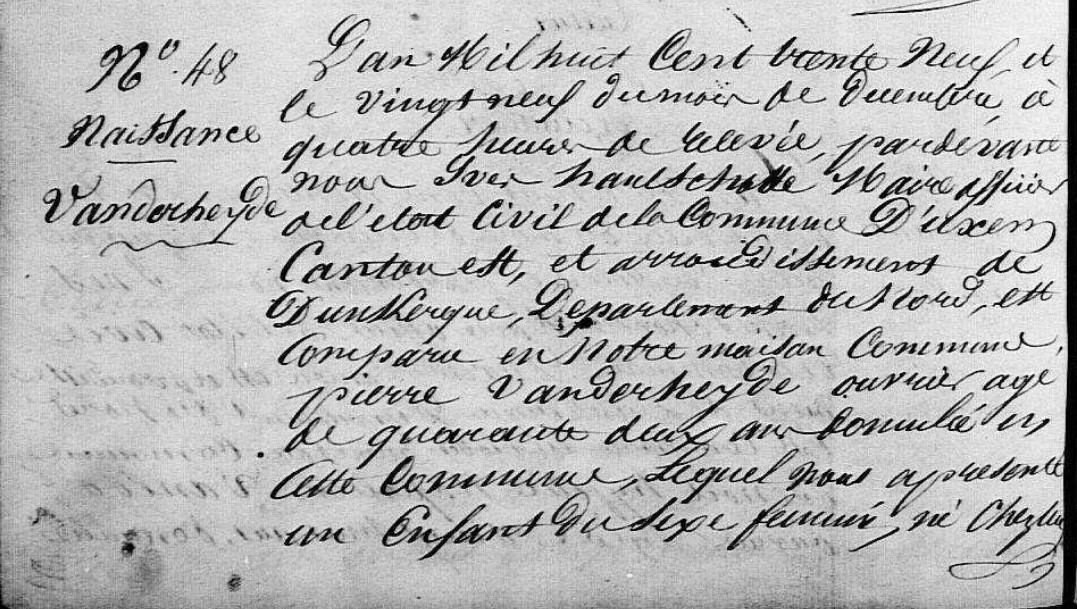 N° 48
Naissance
Vanderheyde
L'an Mil huit Cent trente Neuf et
le vingt neuf du mois de Decembre, à
quatre heures de relevée, pardevant
nous Yves hautSchotte Maire officier
de l'etat Civil de la Commune D'uxem
Canton est, et arrondissement de
Dunkerque, Departement du Nord, est
Comparu en Notre maison Commune,
pierre Vanderheyde ouvrier age
de quarante deux ans domicilié en
Cette Commune, Lequel nous a presenté
un Enfant du Sexe feminin, né Chez lui